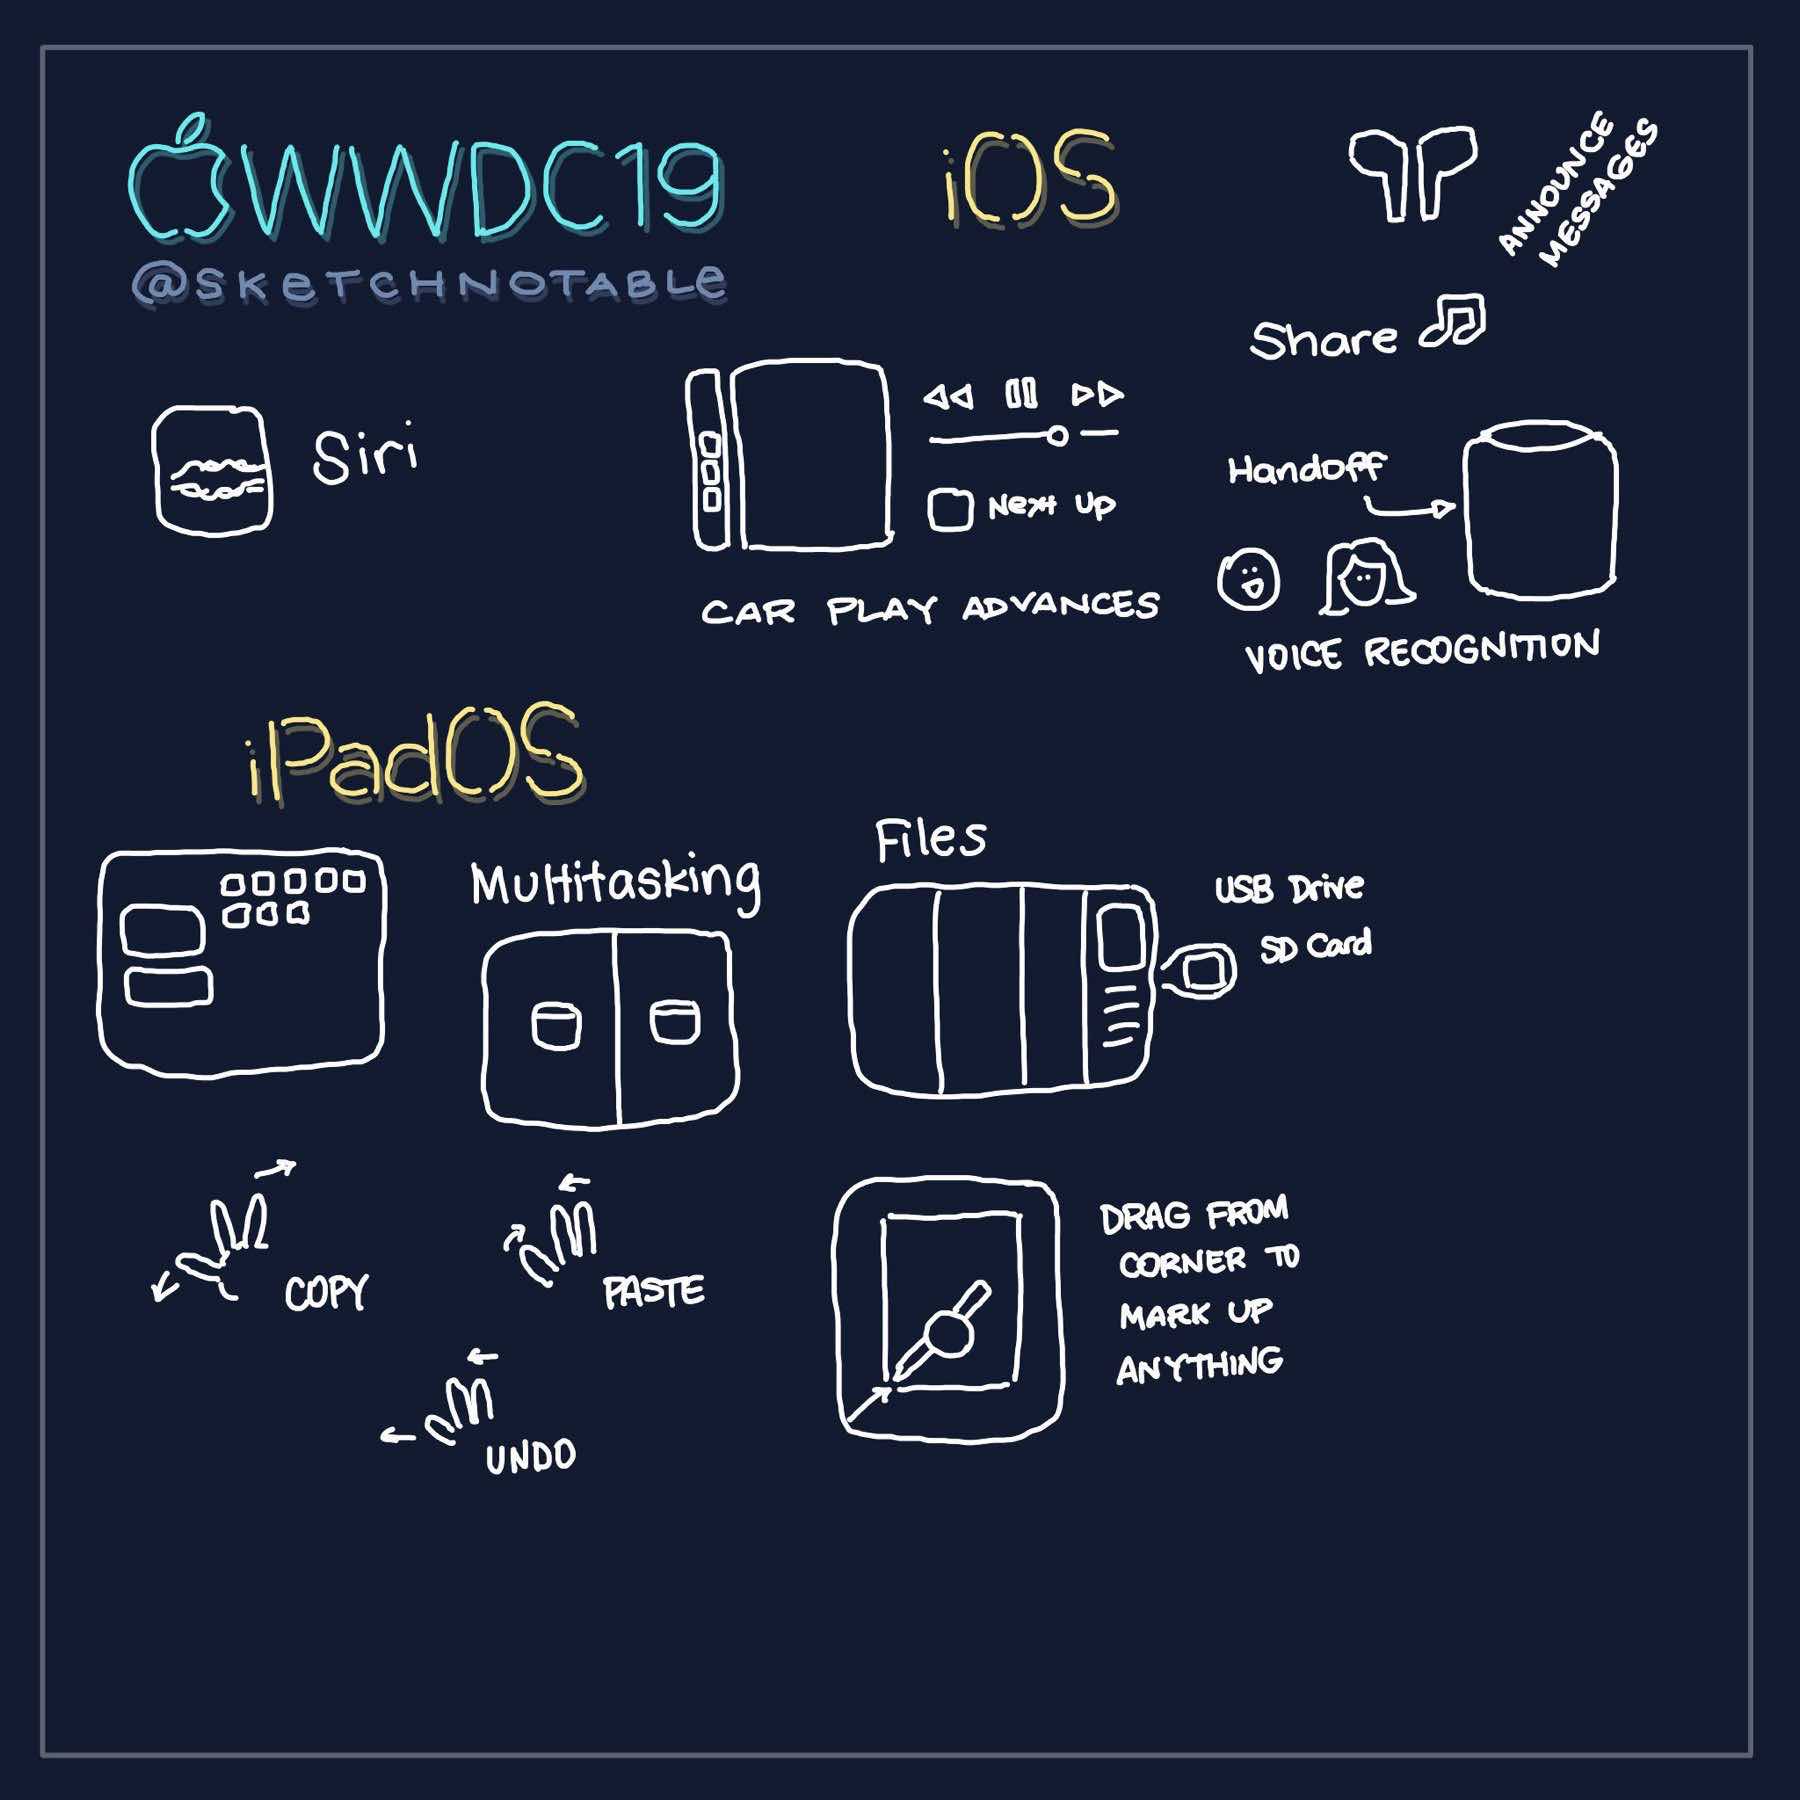 WWDC19
@SKETCHNOTABLE
iOS
ANNOUNCE
MESSAGES
Share
Siri
Next Up
CAR PLAY ADVANCES
Handoff
VOICE RECOGNITION
iPadOS
Multitasking
Files
USB Drive
SD Card
COPY
PASTE
UNDO
DRAG FROM
CORNER TO
MARK UP
ANYTHING